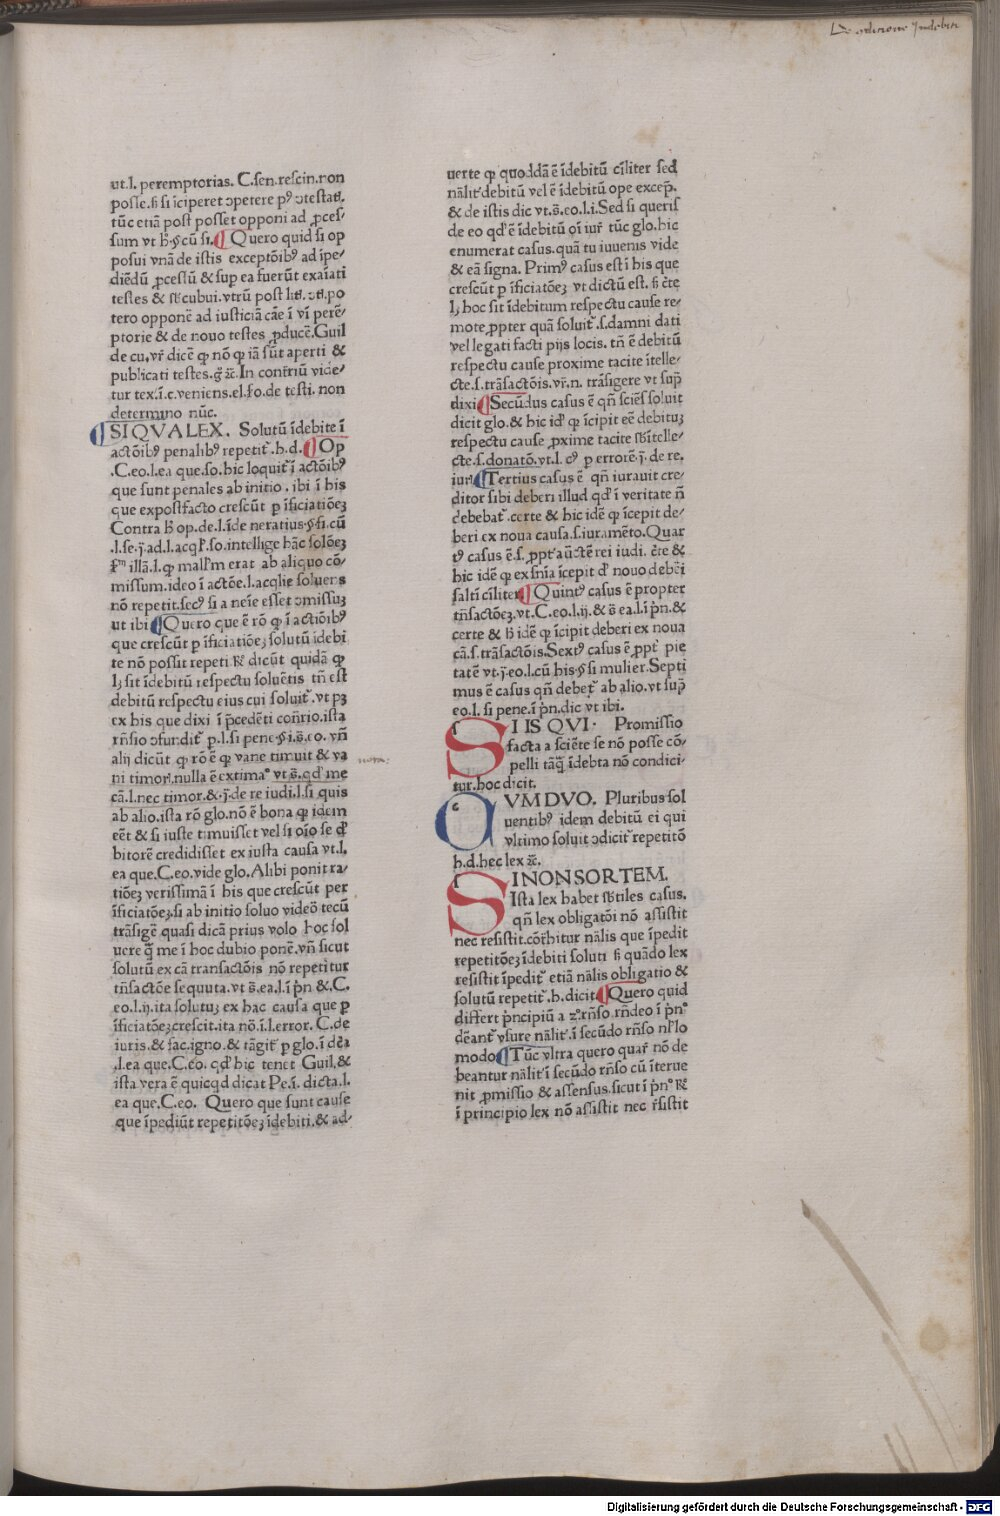 De conditione Indebiti
ut.l. peremptorias. C.sen.rescin.non
posse.s̄ si īciperet ↄpetere pꝰ ↄtestatī.
tūc etiā post posset opponi ad ꝓces⸗
sum vt h̄.§ cū si. ¶ Quero quid si op
posui vnā de istis exceptōibꝰ ad īpe⸗
diēdū ꝓcessū & sup ea fuerūt exaīati
testes & sb̄cubui.vtrū post lit̄.ↄt̄.po
tero opponē ad iusticiā cāe ī vī perē⸗
ptorie & de nouo testes ꝓducē.Guil
de cu.vr̄ dicē ꝙ nō ꝙ iā sūt aperti &
publicati testes.g̊ ⁊c̄.In cont̄riū vide⸗
tur tex.ī.c.veniens.el.fo.de testi. non
determino nūc.
¶ SI QVA LEX. Solutū īdebite ī
actōibꝰ penalibꝰ repetit᷑.h.d. ¶ Op
.C.eo.l.ea que.so.hic loquit᷑ ī actōibꝰ
que sunt penales ab initio . ibi ī his
que expostfacto crescūt ꝑ īficiatiōeꝫ
Contra h̄ op.de.l.īde neratius.§.si.cū
.l.se.ȷ̄.ad.l.acql̄.so.intellige hāc solōeꝫ
illā.l.ꝙ mall'm erat ab aliquo cō⸗
missum.ideo ī actōe.l.acqlie soluens
nō repetit.secꝰ si a neīe esset ↄmissuꝫ
ut ibi ¶ Quero que ē rō ꝙ ī actiōibꝰ
que crescūt ꝑ īficiatiōeꝫ solutū īdebi
te nō possit repeti.R̄ dicūt quidā ꝙ
lꝫ sit īdebitū respectu soluētis tn̄ est
debitū respectu eius cui soluit᷑.vt pꝫ
ex his que dixi ī p̄cedēti cont̄rio.ista
rn̄sio ↄfundit᷑ ꝑ.l.si pene.§.ī.s̄.eo. vn̄
alij dicūt ꝙ rō ē ꝙ vane timuit & va
ni timor̄.nulla ē extimaº vt s̄.qd̄ me nota
cā.l.nec timor.&.ȷ̄.de re iudi.l.si quis
ab alio.ista rō glo.nō ē bona ꝙ idem
eēt & si iuste timuisset vel si oīo se d̄
bitorē credidisset ex iusta causa vt.l.
ea que.C.eo.vide glo.Alibi ponit ra⸗
tiōeꝫ verissimā ī his que crescūt per
īficiatōeꝫ.si ab initio soluo videō tecū
trāsigē quasi dicā prius volo hoc sol
uere q̄ me ī hoc dubio ponē.vn̄ sicut
solutū ex cā transactōis nō repetitur
tn̄sactōe sequuta.vt s̄.ea.l.ī p̄n &.C.
eo.l.ij.ita solutuꝫ ex hac causa que ꝑ
īficiatōeꝫ crescit.ita nō.ī.l.error. C.de
iuris.& fac.igno.& tāgit᷑ ꝑ glo.ī dc̄a
.l.ea que.C.eo. qd̄ hic tenet Guil.&
ista vera ē quicqd dicat Pe.ī. dicta.l.
ea que.C.eo. Quero que sunt cause
que īpediūt repetitōeꝫ īdebiti.& ad⸗
uerte ꝙ quoddā ē īdebitū ciliter sed
nālit᷑ debitū vel ē īdebitū ope excep̄.
& de istis dic vt.s̄.eo.l.i.Sed si queris
de eo qd̄ ē īdebitū oī iur᷑ tūc glo.hic
enumerat casus.quā tu iuuenis vide
& eā signa. Primꝰ casus est ī his que
crescūt ꝑ īficiatōeꝫ vt dictū est. s̄ c̄te
lꝫ hoc sit īdebitum respectu cause re⸗
mote ꝓpter quā soluit᷑.s.damni dati
vel legati facti pijs locis. tn̄ ē debitū
respectu cause proxime tacite ītelle⸗
cte.s.trāsactōis.vr̄.n. trāsigere vt sup̄
dixi ¶ Secūdus casus ē qn̄ sciēs soluit
dicit glo.& hic id̄ ꝙ īcipit eē debituꝫ
respectu cause ꝓxime tacite sb̄ītelle⸗
cte.s.donatō.vt.l. cꝰ ꝑ errorē.ȷ̄.de re.
iur. ¶ Tertius casus ē qn̄ iurauit cre⸗
ditor sibi deberi illud qd̄ ī veritate n̄
debebat᷑.certe & hic idē ꝙ īcepit de⸗
beri ex noua causa.s.iuramēto.Quar
tꝰ casus ē.s. ꝓpt᷑ auc̄tē rei iudi. c̄te &
hic idē ꝙ ex sn̄ia īcepit d̄ nouo deberi
saltī ciliter ¶ Quintꝰ casus ē propter
tn̄sactōeꝫ.vt.C.eo.l.ij.& s̄ ea.l.ī p̄n.&
certe & h̄ idē ꝙ īcipit deberi ex noua
cā.s.trāsactōis.Sextꝰ casus ē ꝓpt᷑ pie
tatē vt.ȷ̄.eo.l.cū his.§ si mulier.Septi
mus ē casus qn̄ debet᷑ ab alio.vt sup̄
eo.l. si pene.ī p̄n.dic vt ibi.
SI IS QVI. Promissio
facta a sciēte se nō posse cō⸗
pelli tāq̄ īdebta nō condici⸗
tur.hoc dicit.
CVM DVO. Pluribus sol
uentibꝰ idem debitū ei qui
vltimo soluit ↄdicit᷑ repetitō
h.d.hec lex ⁊c̄.
SI NON SORTEM.
Ista lex habet sb̄tiles casus.
qn̄ lex obligatōi nō assistit
nec resistit.cōr̄hitur nālis que īpedit
repetitōeꝫ īdebiti soluti s̄ quādo lex
resistit īpedit᷑ etiā nālis obligatio &
solutū repetit᷑.h.dicit ¶ Quero quid
differt p̄ncipiū a ꝫº.rn̄so.rn̄deo ī p̄nº
dēant᷑ vsure nālit᷑.ī secūdo rn̄so nl̄lo
modo ¶ Tūc vltra quero quar᷑ nō de
beantur nālit᷑ ī secūdo rn̄so cū īterue
nit ꝓmissio & assensus.sicut ī p̄nº R̄
ī principio lex nō assistit nec r̄sistit
Digitalisierung gefördert durch die Deutsche Forschungsgemeinschaft - DFG